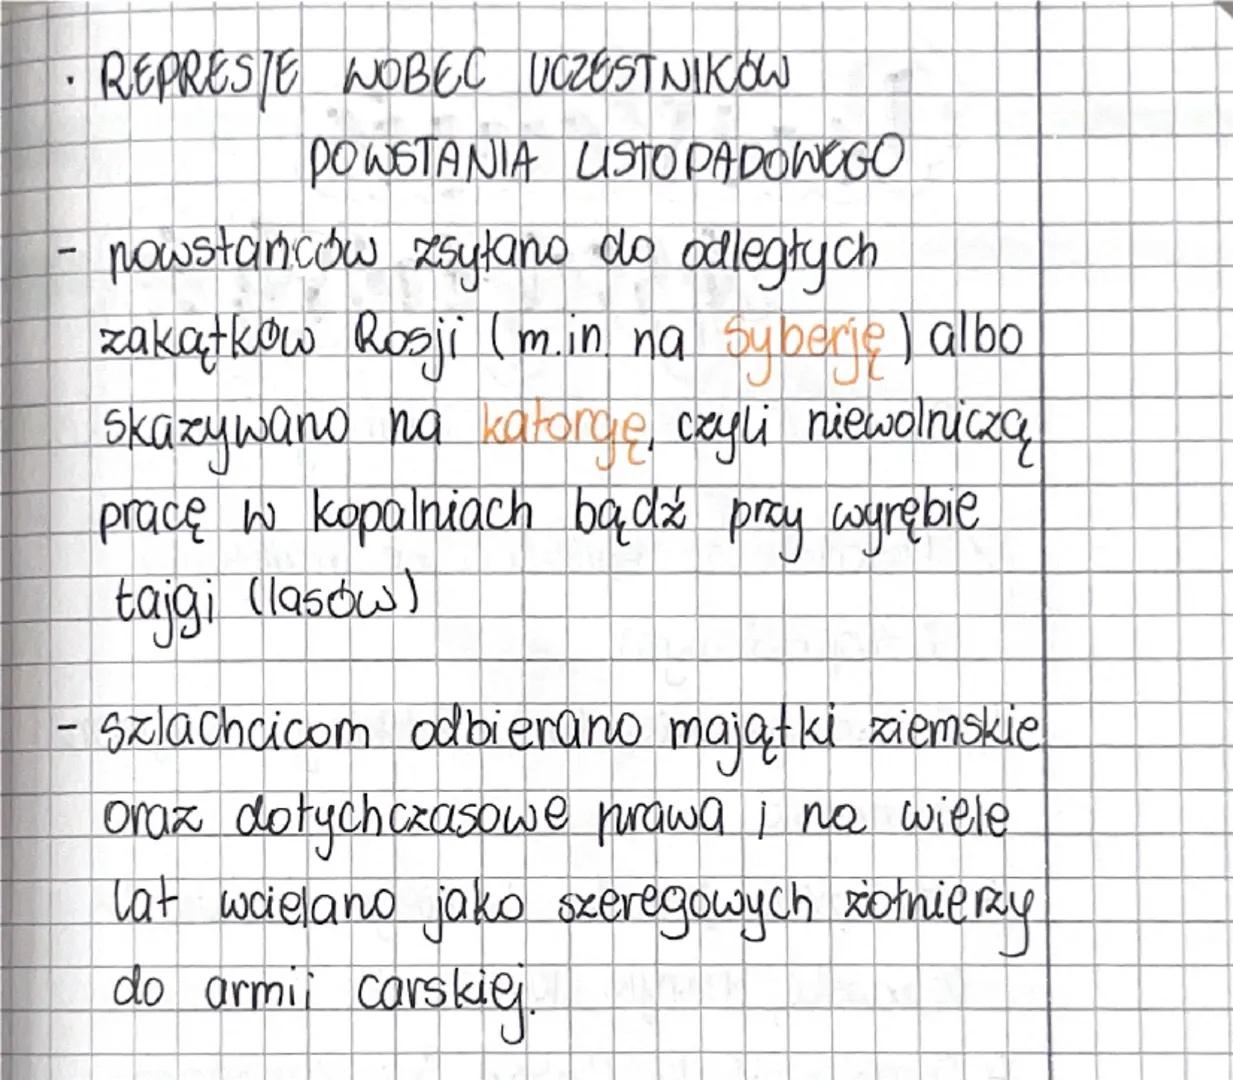 · REPRESJE WOBEC UCZESTNIKÓW
POWSTANIA LISTOPADOWEGO
- powstańców zsyłano do odległych
zakątków Rosji (m.in. na Syberję) albo
skazywano na katorgę, czyli niewolniczą
pracę w kopalniach bądź przy wyrębie
tajgi (lasów)
- szlachcicom odbierano majątki ziemskie
oraz dotychczasowe prawa i na wiele
lat wcielano jako szeregowych żołnierzy
do armii carskiej.